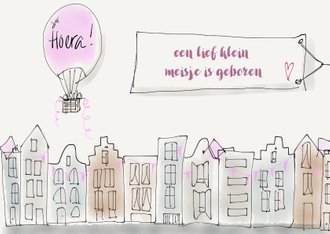 Hoera!
een lief klein
meisje is geboren